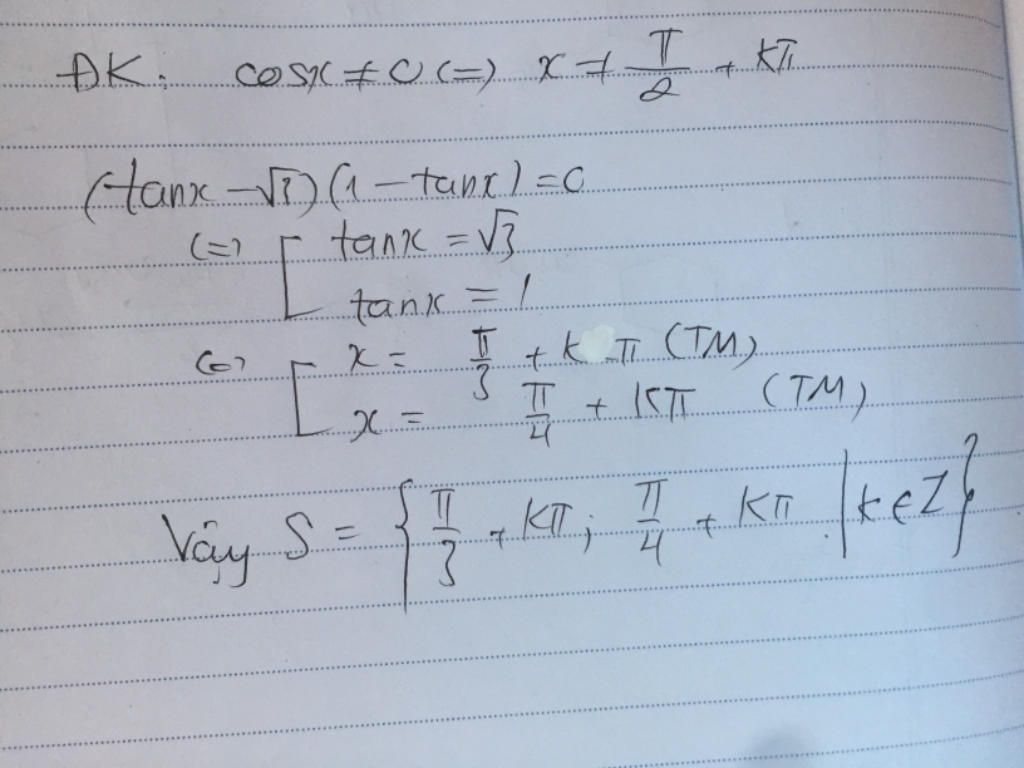 ĐK: cosx ≠ 0 (=) x ≠ π/2 + kπ
(tanx - √3)(1 - tanx) = 0
(=) [ tanx = √3
tanx = 1
(=) [ x = π/3 + k π (TM)
x = π/4 + kπ (TM)
Vậy S = { π/3 + kπ; π/4 + kπ | k ∈ Z }